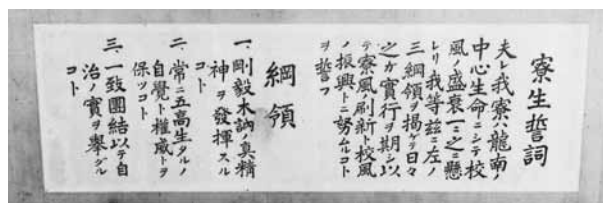 寮生誓詞
夫レ我寮ハ龍南ノ
中心生命ニシテ校
風ノ盛衰一ニ之ニ懸
レリ我等茲ニ左ノ
三綱領ヲ揭ゲテ日々
之ガ實行ヲ期シ以
テ寮風刷新ト校風
ノ振興トニ努ムルコト
ヲ誓フ
綱領
一、剛毅木訥ノ眞精
神ヲ發揮スル
コト
二、常ニ五高生タルノ
自覺ト權威トヲ
保ツコト
三、一致團結以テ自
治ノ實ヲ擧グル
コト